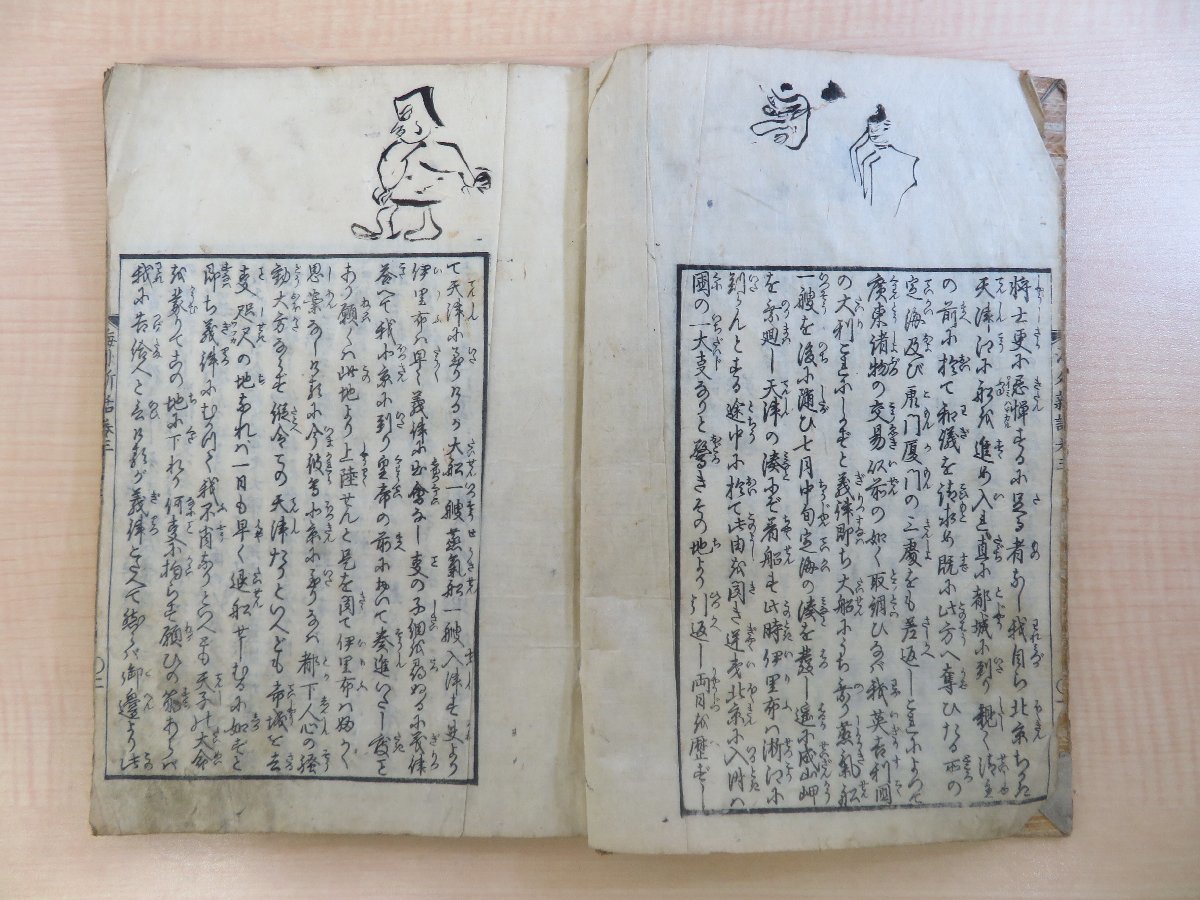 将士更に忌憚するに足る者なし我自ら北京ちかき
天津江に船を進め入れ直に都城に到り親く清主
の前に於て和儀を請求め既に此方へ奪ひたる所の
定海及び東門厦門の三處をも差返しこれによつて
廣東諸物の交易以前の如く取調ひなば我英吉利國
の大利これにしかずと義律即ち大船にうち乗り蒸氣船
一艘を後に随ひ七月中旬定海の湊を發し遥に成山岬
を乗廻し天津の湊にぞ着船す此時伊里布は浙江に
到らんとする途中に於て此由を聞き逆夷北京に入時は
國の一大事なりと驚きその地より引返し両日を歴ずし
て天津に至りけるが大船一艘蒸氣船一艘入津す夫より
伊里布は早く義律に出會なし事の子細を尋ぬるに義律
答へて我北京に到り皇帝の前において奏進いたし度ことあり
願くは此地より上陸せんと是を聞て伊里布は如何
思案なしけるに今彼等北京に至りなば都下人心の騒
動大方ならず縦令ての天津なりといへども帝城を去
事咫尺の地なれば一日も早く退船せしむるに如ずと
即ち義律にむかつて我不肖なりといへども天子の大命
を蒙りて此の地に下れり何事に拘らず願ひの筋あらば
我に告給へと云ければ義律こたへて然らば御邊より此
海外新話巻三